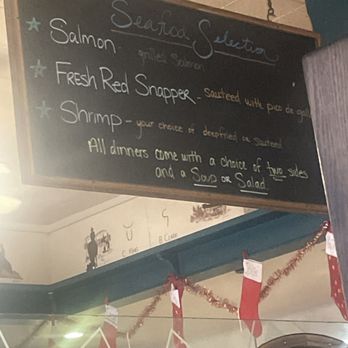 Seafood Selection
Salmon - grilled Salmon
Fresh Red Snapper - sauteed with pico de gallo
Shrimp - your choice of deepfried or sauteed
All dinners come with a choice of two sides
and a Soup or Salad